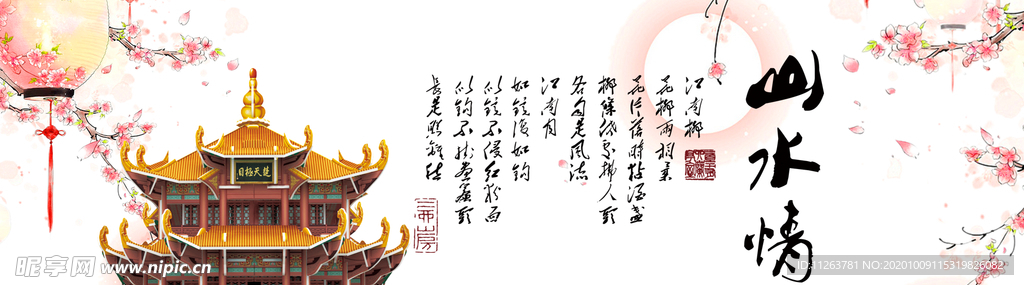 山水情
江南柳
花柳两相柔
花片落时粘酒盏
柳条低处拂人头
各自是风流
江南月
如镜复如钩
似镜不侵红粉面
似钩不挂画帘头
长是照离愁
楚天极目
昵享网 www.nipic.cn
ID:11263781 NO:20201009115319826082